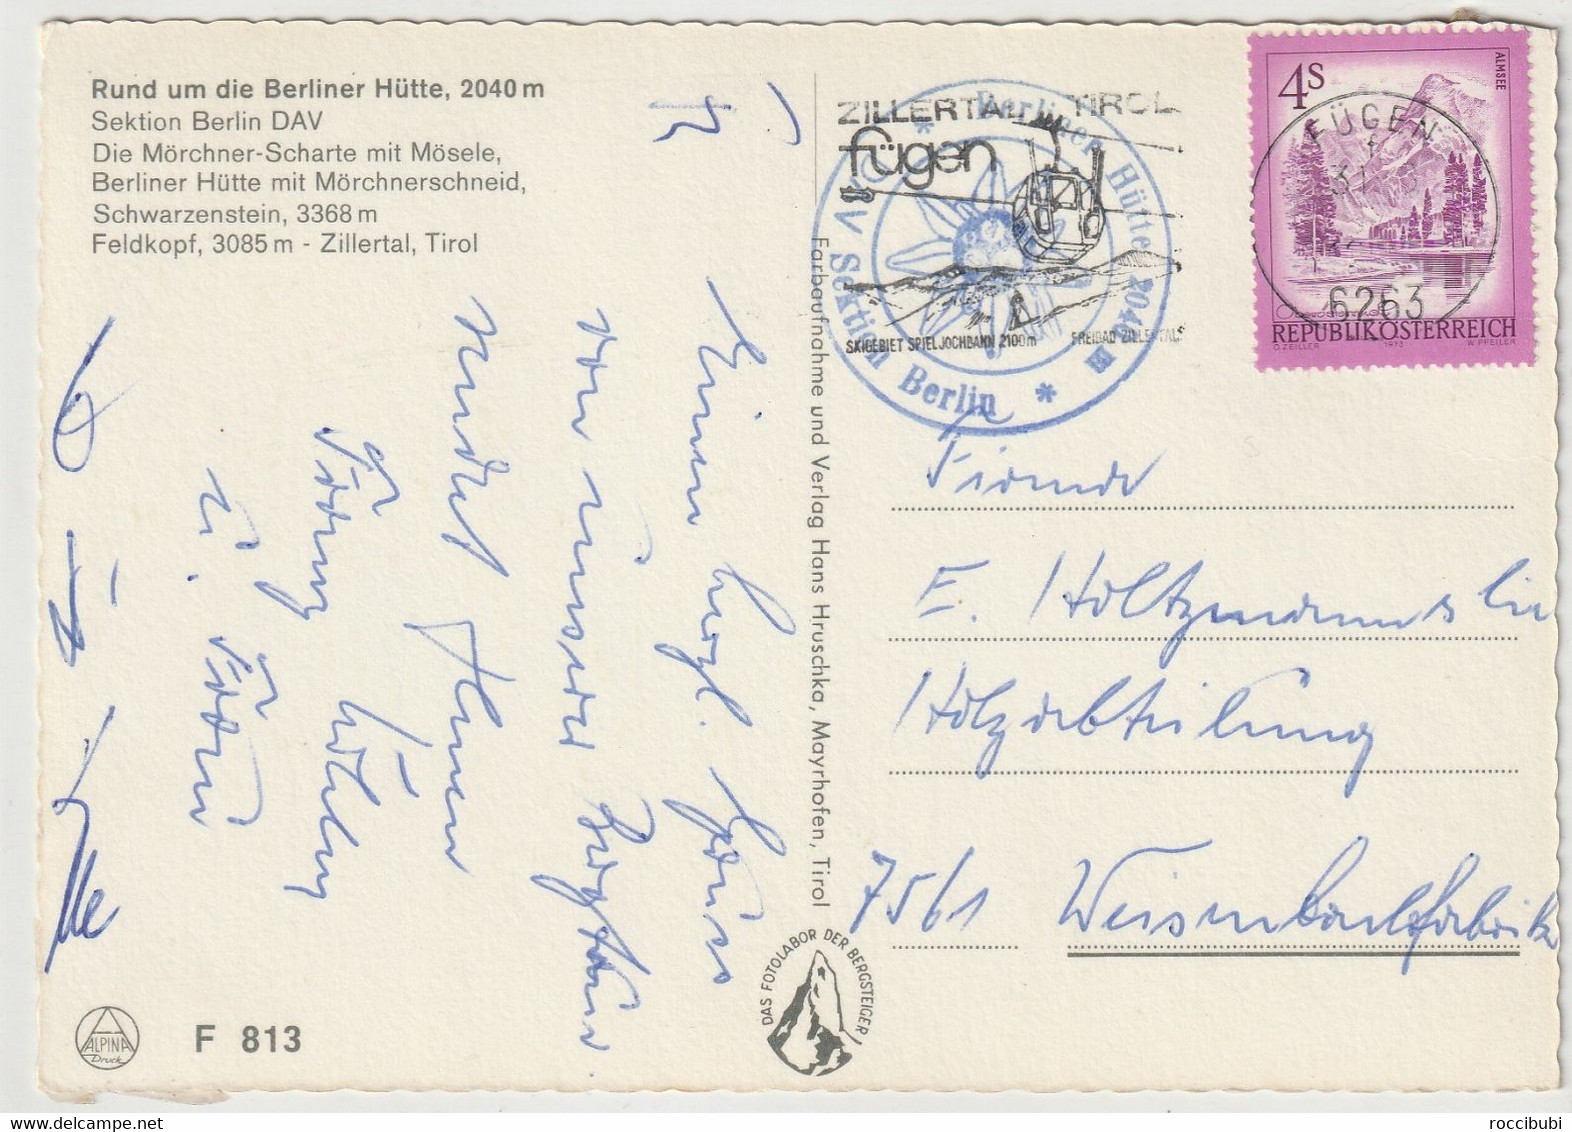 Rund um die Berliner Hütte, 2040 m
Sektion Berlin DAV
Die Mörchner-Scharte mit Mösele,
Berliner Hütte mit Mörchnerschneid,
Schwarzenstein, 3368 m
Feldkopf, 3085 m - Zillertal, Tirol
ZILLERTAL TIROL
fügen
SKIGEBIET SPIELJOCHBAHN 2100m
FREIBAD ZILLERTAL
Berliner Hütte 2040 m
DAV Sektion Berlin
4S
ALMSEE
FÜGEN
6263
REPUBLIK ÖSTERREICH
O. ZEILER 1973 W. PFEILER
Farbaufnahme und Verlag Hans Hruschka, Mayrhofen, Tirol
Einen herzl. Gruss
von unserer
sendet Ihnen
u.
Firma
E. Holtzmann &
Holzabteilung
7561
DAS FOTOLABOR DER BERGSTEIGER
ALPINA
Druck
F 813
roccibubi